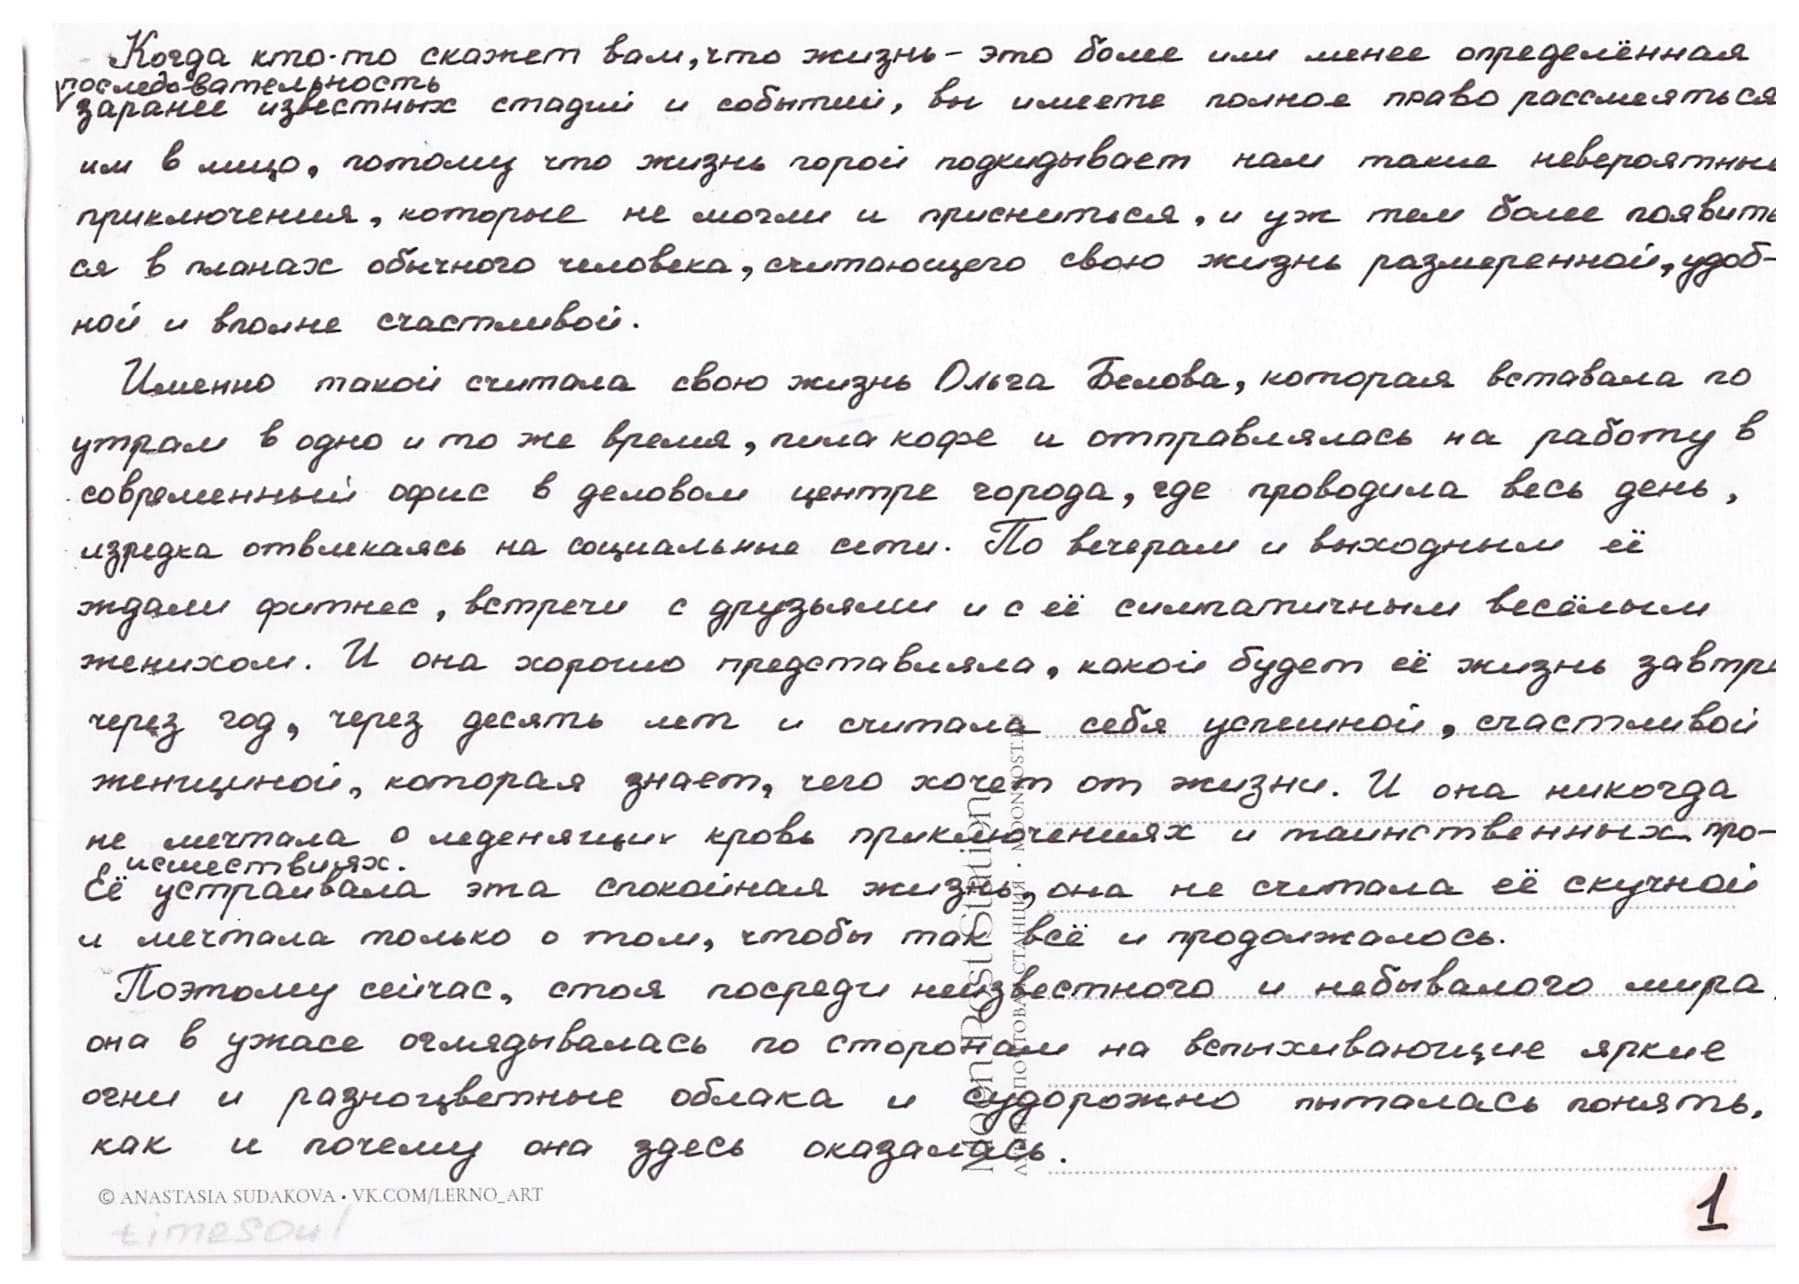 Когда кто-то скажет вам, что жизнь – это более или менее определённая
последовательность
заранее известных стадий и событий, вы имеете полное право рассмеяться
им в лицо, потому что жизнь порой подкидывает нам такие невероятные
приключения, которые не могли и присниться, и уж тем более появить
ся в планах обычного человека, считающего свою жизнь размеренной, удоб-
ной и вполне счастливой.
Именно такой считала свою жизнь Ольга Белова, которая вставала по
утрам в одно и то же время, пила кофе и отправлялась на работу в
современный офис в деловом центре города, где проводила весь день,
изредка отвлекаясь на социальные сети. По вечерам и выходным её
ждали фитнес, встречи с друзьями и с её симпатичным весёлым
женихом. И она хорошо представляла, какой будет её жизнь завтра
через год, через десять лет и считала себя успешной, счастливой
женщиной, которая знает, чего хочет от жизни. И она никогда
не мечтала о леденящих кровь приключениях и таинственных про-
исшествиях.
Её устраивала эта спокойная жизнь, она не считала её скучной
и мечтала только о том, чтобы так всё и продолжалось.
Поэтому сейчас, стоя посреди неизвестного и небывалого мира,
она в ужасе оглядывалась по сторонам на вспыхивающие яркие
огни и разноцветные облака и судорожно пыталась понять,
как и почему она здесь оказалась.
Moon Post Station
ПОЧТОВАЯ СТАНЦИЯ • MOONPOST.RU
© ANASTASIA SUDAKOVA • VK.COM/LERNO_ART
timesoul
1